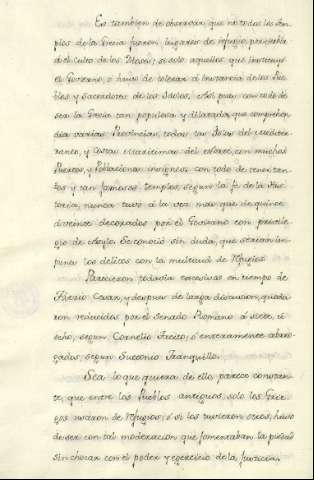 Es tambien de observar, que no todos los tem-
plos de la Grecia fueron lugares de refugio, por sobra
á el culto de los Dioses; si solo aquellos que instituyó
el Govierno, ó huvo de tolerar á instancia de los Pue-
blos y Sacerdotes de los Idolos. Asi pues con todo de
ser la Grecia tan populosa y dilatada, que comprehen-
dia varias Provincias, todas las Islas del mediter-
raneo, y costas maritimas del estado, con muchos
Puertos, y Poblaciones insignes con todo de tener tan-
tos y tan famosos templos, segun la fe de la His-
toria, nunca tuvo á la vez más que de quince
á veinte decorados por el Govierno con privile-
gio de Asylo. Se conoció sin duda, que serían im-
punes los delitos con la multitud de Refugios.
Parecieron todavia excesivas en tiempo de
Tiberio Cesar, y despues de larga discusion, queda-
ron reducidos por el Senado Romano á siete, ú
ocho, segun Cornelio Tacito, ó enteramente abro-
gados, segun Suetonio Tranquillo.
Sea lo que quiera de ello parece constan-
te, que entre los Pueblos antiguos, solo los Grie-
gos usaron de Refugios; ó si los tuvieron otros, huvo
de ser con tal moderacion que fomentaban la piedad
sin chocar con el poder y egercicio de la Justicia.